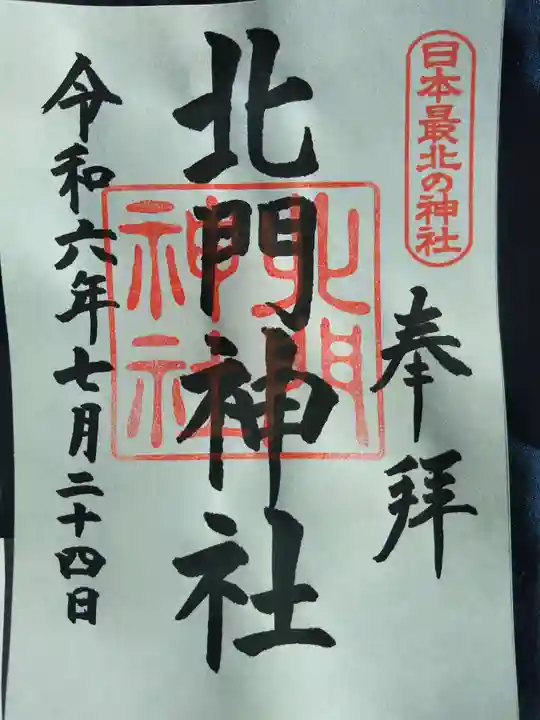 日本最北の神社
奉拝
北門神社
北門
神社
令和六年七月二十四日